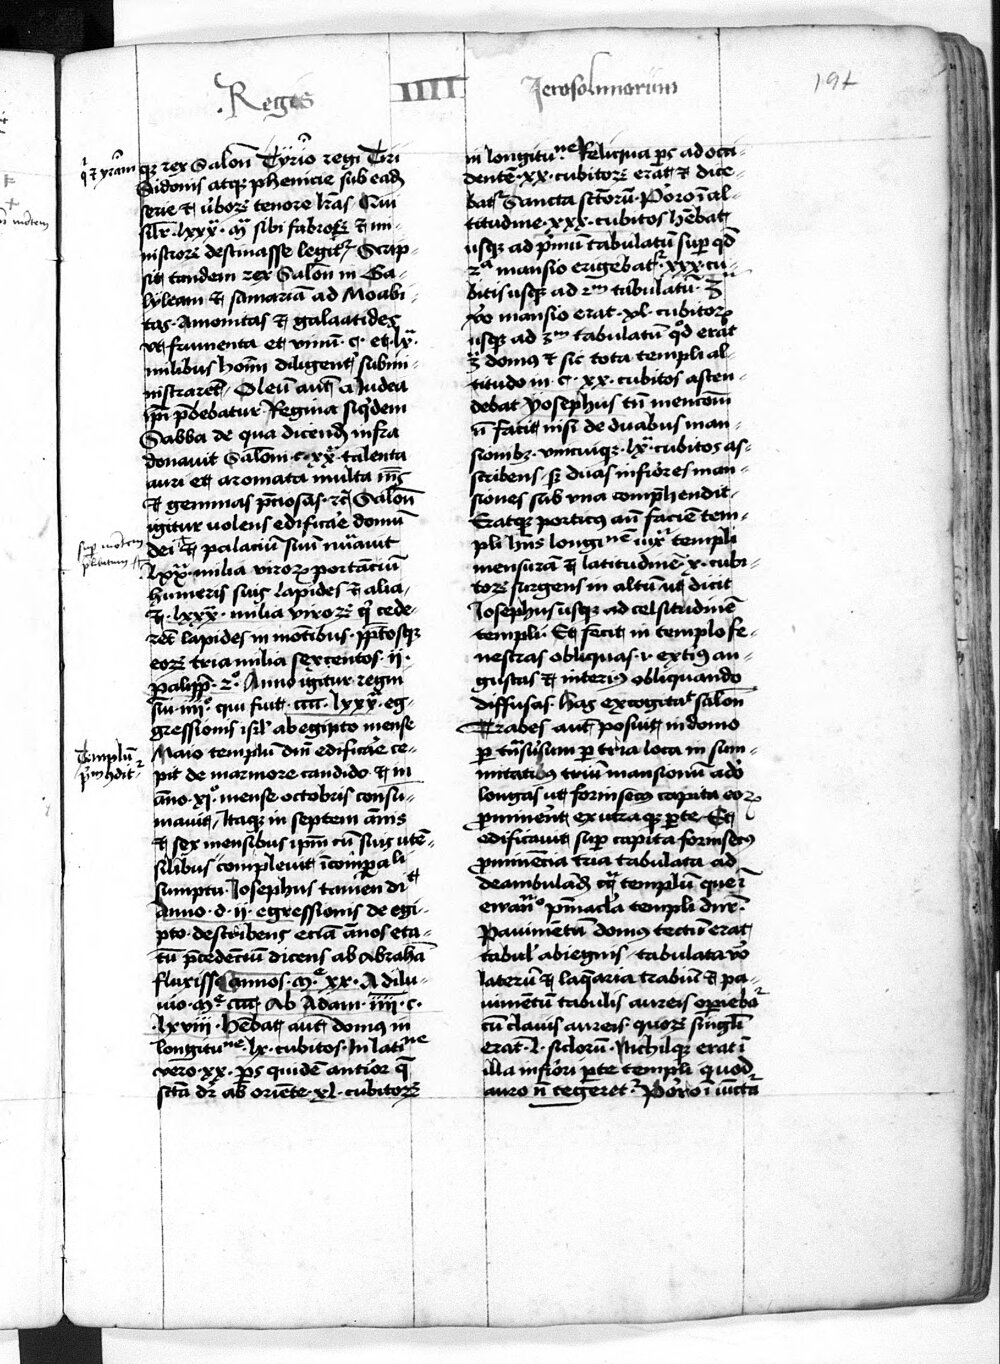 Regis IIII Jerosolimorum 194
qz rex Salon Tyrio regi Tiri
Sidonis atqz phenicie sub eadem
serie et uberes tenore lras Qui
silr lxxx m sibi fabros et mi-
nistros destinasse legit Scrip-
sit tandem rex Salon in Ga-
lyleam et samariam ad Moabi-
tas Amonitas et galaatides
ut frumenta et vinum c et lx
milibus hoim diligent submi-
nistraret Oleu aut a Judea
ipi pbebatur Regina siqdem
Sabba de qua dicend infra
donavit Salom c xx talenta
auri et aromata multa
et gemmas pciosas Salon
igitur volens edificare domum
dei et palacium suum nuavit
lxx milia viroz portancium
humeris suis lapides et alia
et lxxx milia viroz q cede-
ret lapides in motibus pptosqz
eoz tria milia sexcentos ii
palipp 2o Anno igitur regni
sui iiijo qui fuit cccc lxxx eg-
gressionis isrl ab egipto mense
Maio templu dni edificare ce-
pit de marmore candido et in
ano xio mense octobris consu-
mavit Itaqz in septem annis
et sex mensibus ipm cu suis uten-
silibus complevit icomparali
sumptu Josephus tamen dicit
Anno d ii egressionis de egi-
pto describens eciam annos eta-
tu pcedenciu dicens ab Abraham
fluxisse annos m xx A dilu-
vio m cccc Ab Adam iiii c
lxviii Hebat aut domus in
longitune lx cubitos In latine
vero xx ps quidem antior q
scta dr ab oriente xl cubitoz
qz tyram
sup motem
Templu
in longitune Reliqua ps ad occi-
dentem xx cubitoz erat et dice-
bat Sancta sctorum Porro i al-
titudine xxx cubitos hebat
usqz ad pmu tabulatu sup qd
2a mansio erigebat xxx cu-
bitis usqz ad 2m tabulatu 3a
vo mansio erat xl cubitoz
usqz ad 3m tabulatu qd erat
3a domus et sic tota templi al-
titudo in c xx cubitos ascen-
debat Josephus tn mencionem
n facit nisi de duabus man-
sionibz unicuiqz lx cubitos as-
scribens sz duas inferiores man-
siones sub una comphendit
Eratqz porticus an faciem tem-
pli hns longine iuxta templi
mensuram et latitudinem x cubi-
toz surgens in altum ut dicit
Josephus usqz ad celsitudinem
templi Et fecit in templo fe-
nestras obliquas i extius an-
gustas et interius obliquando
diffusas has excogitat salon
Trabes aut posuit in domo
p tnsusum p tria loca in sum-
mitatibus trium mansionum adeo
longas ut forinsecus capita eoz
pminent ex utraqz pte Et
edificavit sup capita forinsecus
pminencia tria tabulata ad
deambuland cca templum que i
ewano pinacla templi dnr
Pavimentu domus tectum erat
tabul abiegnis tabulata vo
lateru et laqaria trabium et pa-
vimentu tabulis aureis opieba
cu clavis aureis quoz singli
erat l siclorum Nichilqz erat i
illa infiori pte templi quod
auro n tegeret Porro i iuncta